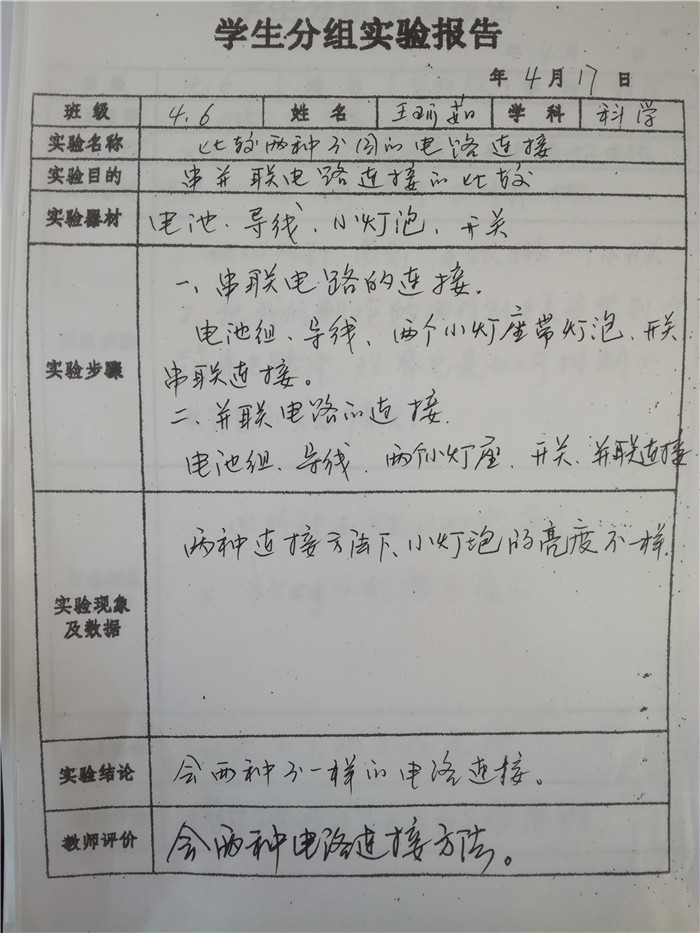 学生分组实验报告
年 4 月 17 日
班级 4.6 姓名 王 茹 学科 科学
实验名称 比较两种不同的电路连接
实验目的 串并联电路连接的比较
实验器材 电池、导线、小灯泡、开关
实验步骤
一、串联电路的连接.
电池组、导线、两个小灯座带灯泡、开关
串联连接。
二、并联电路的连接.
电池组、导线、两个小灯座、开关、并联连接
实验现象及数据
两种连接方法下、小灯泡的亮度不一样.
实验结论 会两种不一样的电路连接。
教师评价 会两种电路连接方法。